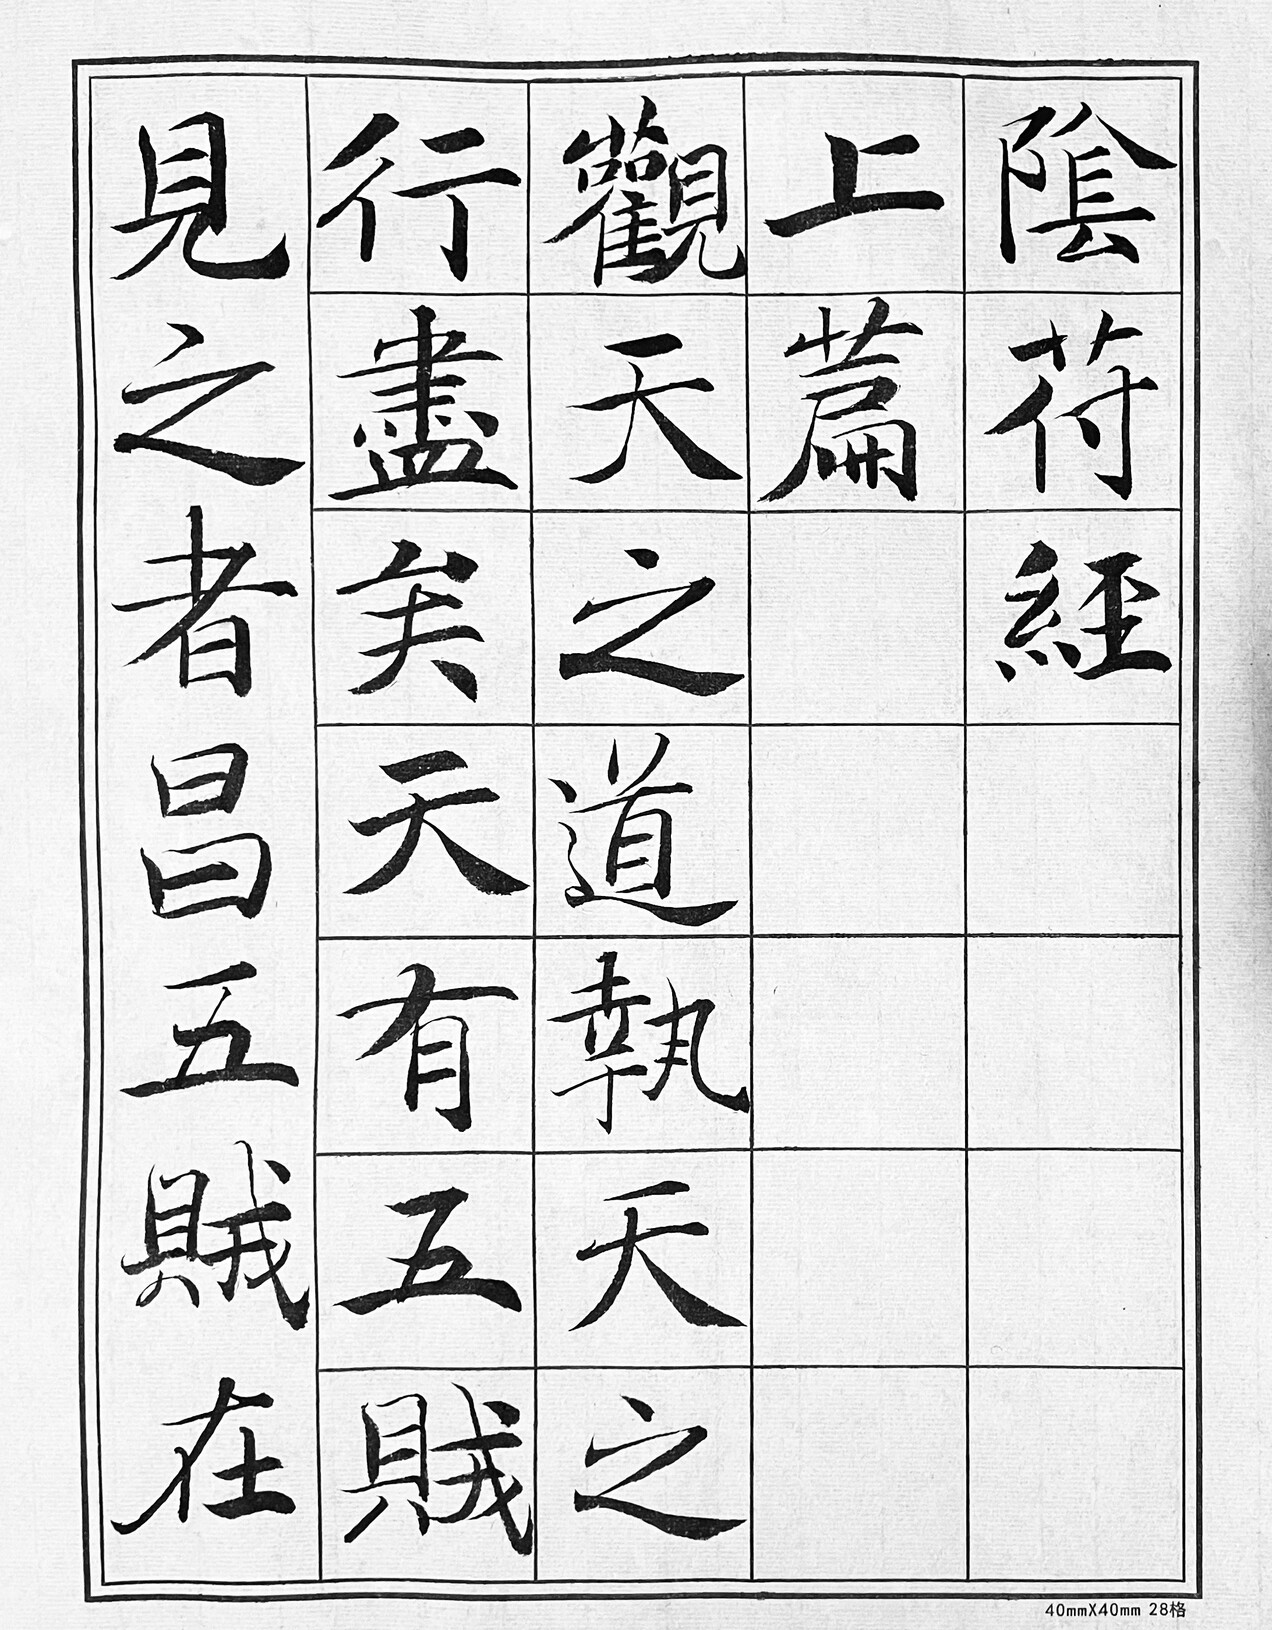 陰符經
上篇
觀天之道執天之
行盡矣天有五賊
見之者昌五賊在
40mmX40mm 28格